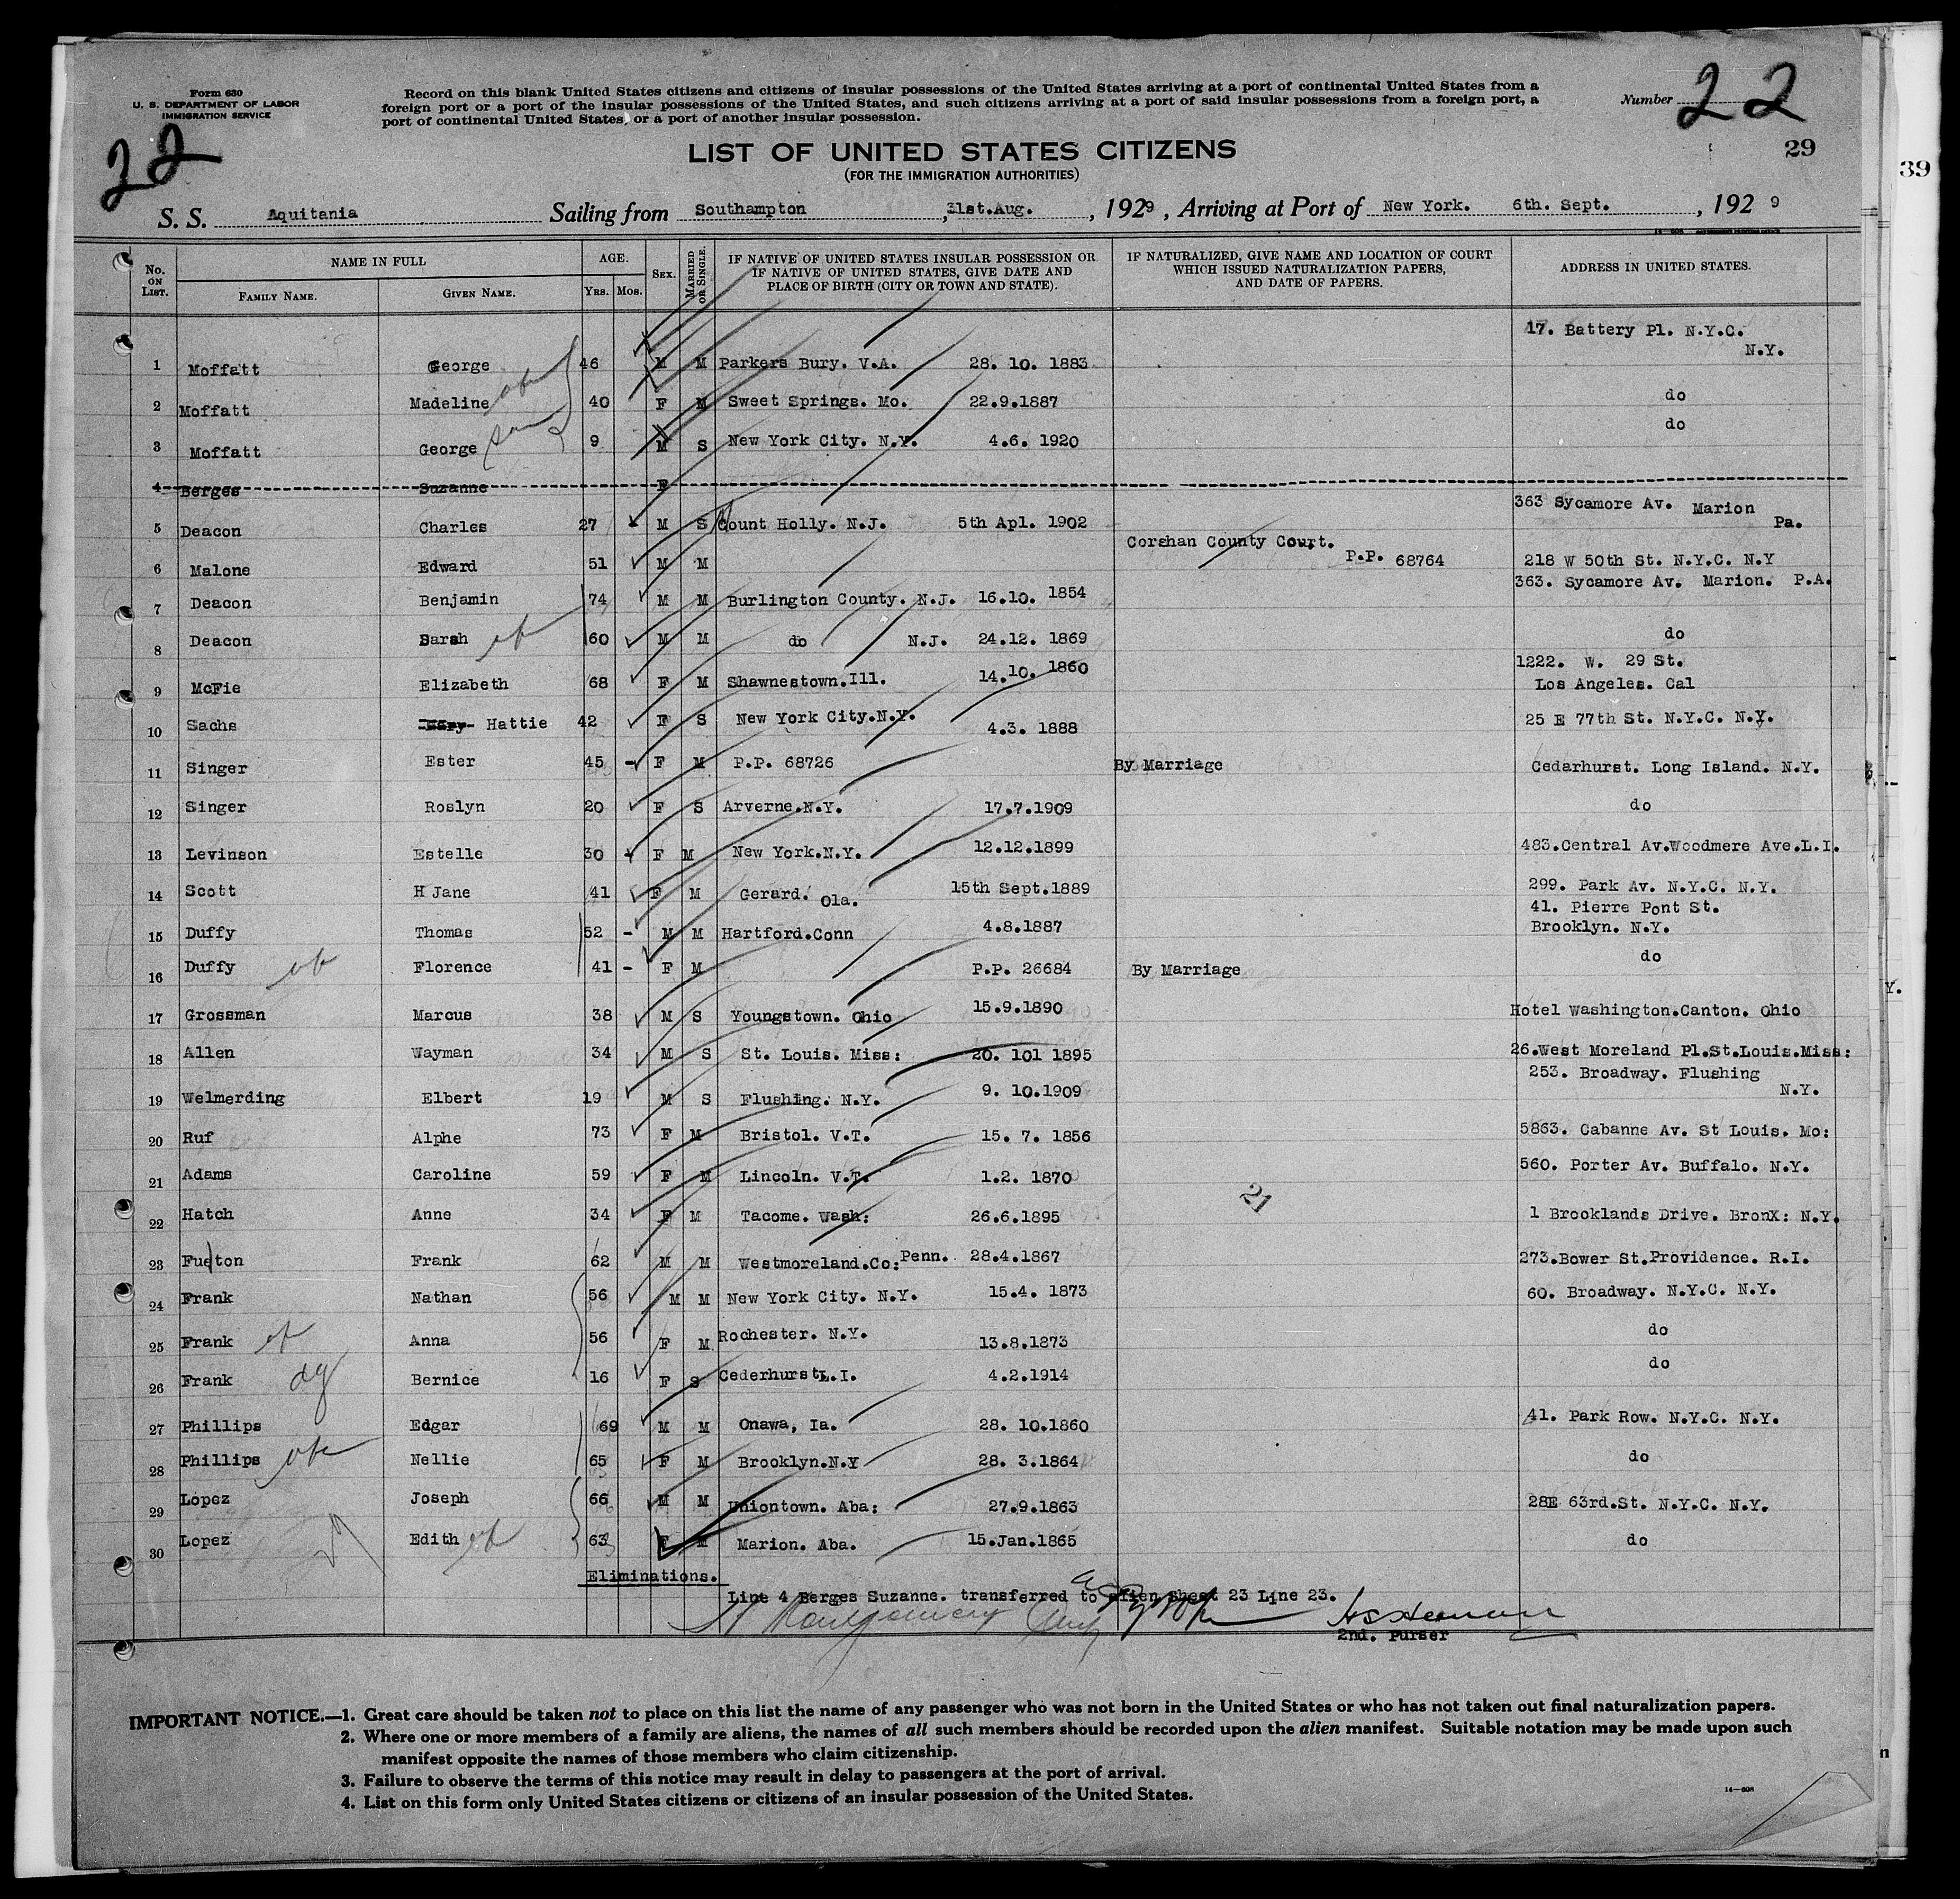 Form 630
U. S. DEPARTMENT OF LABOR
IMMIGRATION SERVICE
Record on this blank United States citizens and citizens of insular possessions of the United States arriving at a port of continental United States from a
foreign port or a port of the insular possessions of the United States, and such citizens arriving at a port of said insular possessions from a foreign port, a
port of continental United States, or a port of another insular possession.
Number 22
22
29
39
LIST OF UNITED STATES CITIZENS
(FOR THE IMMIGRATION AUTHORITIES)
S. S. Aquitania Sailing from Southampton, 31st.Aug., 1929, Arriving at Port of New York. 6th. Sept., 1929
No. ON LIST. NAME IN FULL FAMILY NAME. GIVEN NAME. AGE. YRS. MOS. SEX. MARRIED OR SINGLE. IF NATIVE OF UNITED STATES INSULAR POSSESSION OR IF NATIVE OF UNITED STATES, GIVE DATE AND PLACE OF BIRTH (CITY OR TOWN AND STATE). IF NATURALIZED, GIVE NAME AND LOCATION OF COURT WHICH ISSUED NATURALIZATION PAPERS, AND DATE OF PAPERS. ADDRESS IN UNITED STATES.
1 Moffatt George 46 M M Parkers Bury. V.A. 28. 10. 1883 17. Battery Pl. N.Y.C. N.Y.
2 Moffatt Madeline 40 F M Sweet Springs. Mo. 22.9.1887 do
3 Moffatt George 9 M S New York City. N.Y. 4.6. 1920 do
4 Berges Suzanne F
5 Deacon Charles 27 M S Mount Holly. N.J. 5th Apl. 1902 363 Sycamore Av. Marion Pa.
6 Malone Edward 51 M M Corshan County Court. P.P. 68764 218 W 50th St. N.Y.C. N.Y
7 Deacon Benjamin 74 M M Burlington County. N.J. 16.10. 1854 363. Sycamore Av. Marion. P.A.
8 Deacon Sarah 60 M M do N.J. 24.12. 1869 do
9 McFie Elizabeth 68 F M Shawnestown.Ill. 14.10. 1860 1222. W. 29 St. Los Angeles. Cal
10 Sachs Hattie 42 F S New York City.N.Y. 4.3. 1888 25 E 77th St. N.Y.C. N.Y.
11 Singer Ester 45 - F M P.P. 68726 By Marriage Cedarhurst. Long Island. N.Y.
12 Singer Roslyn 20 F S Arverne.N.Y. 17.7.1909 do
13 Levinson Estelle 30 F M New York.N.Y. 12.12.1899 483.Central Av.Woodmere Ave.L.I.
14 Scott H Jane 41 F M Gerard. Ola. 15th Sept.1889 299. Park Av. N.Y.C. N.Y.
15 Duffy Thomas 52 - M M Hartford.Conn 4.8.1887 41. Pierre Pont St. Brooklyn. N.Y.
16 Duffy Florence 41 - F M P.P. 26684 By Marriage do
17 Grossman Marcus 38 M S Youngstown. Ohio 15.9.1890 Hotel Washington.Canton. Ohio
18 Allen Wayman 34 M S St. Louis. Miss: 20. 101 1895 26.West Moreland Pl.St.Louis.Miss:
19 Welmerding Elbert 19 M S Flushing. N.Y. 9. 10.1909 253. Broadway. Flushing N.Y.
20 Ruf Alphe 73 F M Bristol. V.T. 15. 7. 1856 5863. Cabanne Av. St Louis. Mo:
21 Adams Caroline 59 F M Lincoln. V.T. 1.2. 1870 560. Porter Av. Buffalo. N.Y.
21
22 Hatch Anne 34 F M Tacome. Wash: 26.6.1895 1 Brooklands Drive. BronX: N.Y.
23 Frank 62 M M Westmoreland.Co: Penn. 28.4.1867 273.Bower St.Providence. R.I.
24 Frank Nathan 56 M M New York City. N.Y. 15.4. 1873 60. Broadway. N.Y.C. N.Y.
25 Frank Anna 56 F M Rochester. N.Y. 13.8.1873 do
26 Frank Bernice 16 F S Cederhurst L.I. 4.2.1914 do
27 Phillips Edgar 69 M M Onawa, Ia. 28. 10.1860 41. Park Row. N.Y.C. N.Y.
28 Phillips Nellie 65 F M Brooklyn.N.Y 28. 3.1864 do
29 Lopez Joseph 66 M M Uniontown. Aba: 27.9.1863 28E 63rd.St. N.Y.C. N.Y.
30 Lopez Edith 63 F M Marion. Aba. 15.Jan.1865 do
Eliminations.
Line 4 Berges Suzanne. transferred to alien Sheet 23 Line 23.
2nd. Purser
IMPORTANT NOTICE.—1. Great care should be taken not to place on this list the name of any passenger who was not born in the United States or who has not taken out final naturalization papers.
2. Where one or more members of a family are aliens, the names of all such members should be recorded upon the alien manifest. Suitable notation may be made upon such
manifest opposite the names of those members who claim citizenship.
3. Failure to observe the terms of this notice may result in delay to passengers at the port of arrival.
4. List on this form only United States citizens or citizens of an insular possession of the United States.